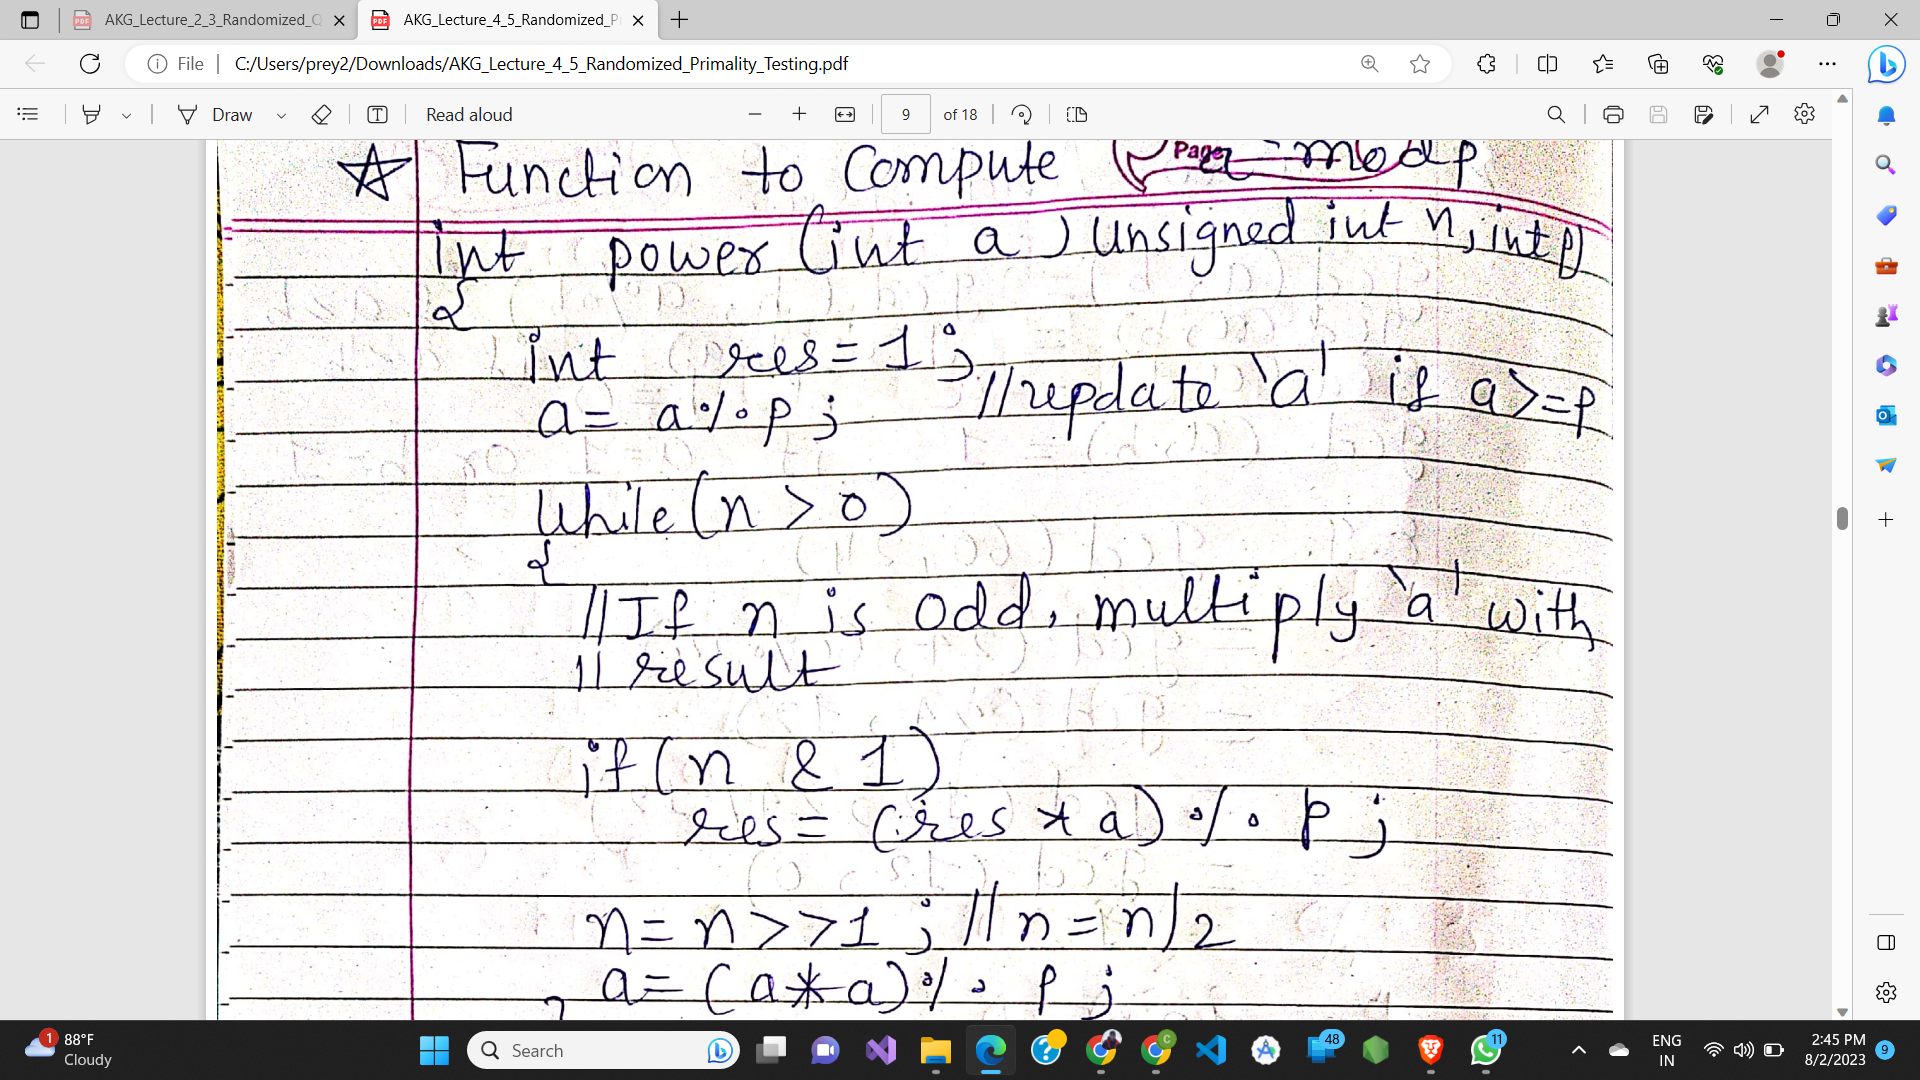 AKG_Lecture_2_3_Randomized_Q
AKG_Lecture_4_5_Randomized_P
File
C:/Users/prey2/Downloads/AKG_Lecture_4_5_Randomized_Primality_Testing.pdf
Draw
Read aloud
9 of 18
Page
☆ Function to Compute a mod p
int power (int a, unsigned int n, int p)
{
int res = 1;
a = a % p; // update 'a' if a >= p
while (n > 0)
{
// If n is odd, multiply 'a' with
// result
if (n & 1)
res = (res * a) % p;
n = n >> 1; // n = n/2
a = (a * a) % p;
1
88°F
Cloudy
Search
48
11
ENG
IN
2:45 PM
8/2/2023
9